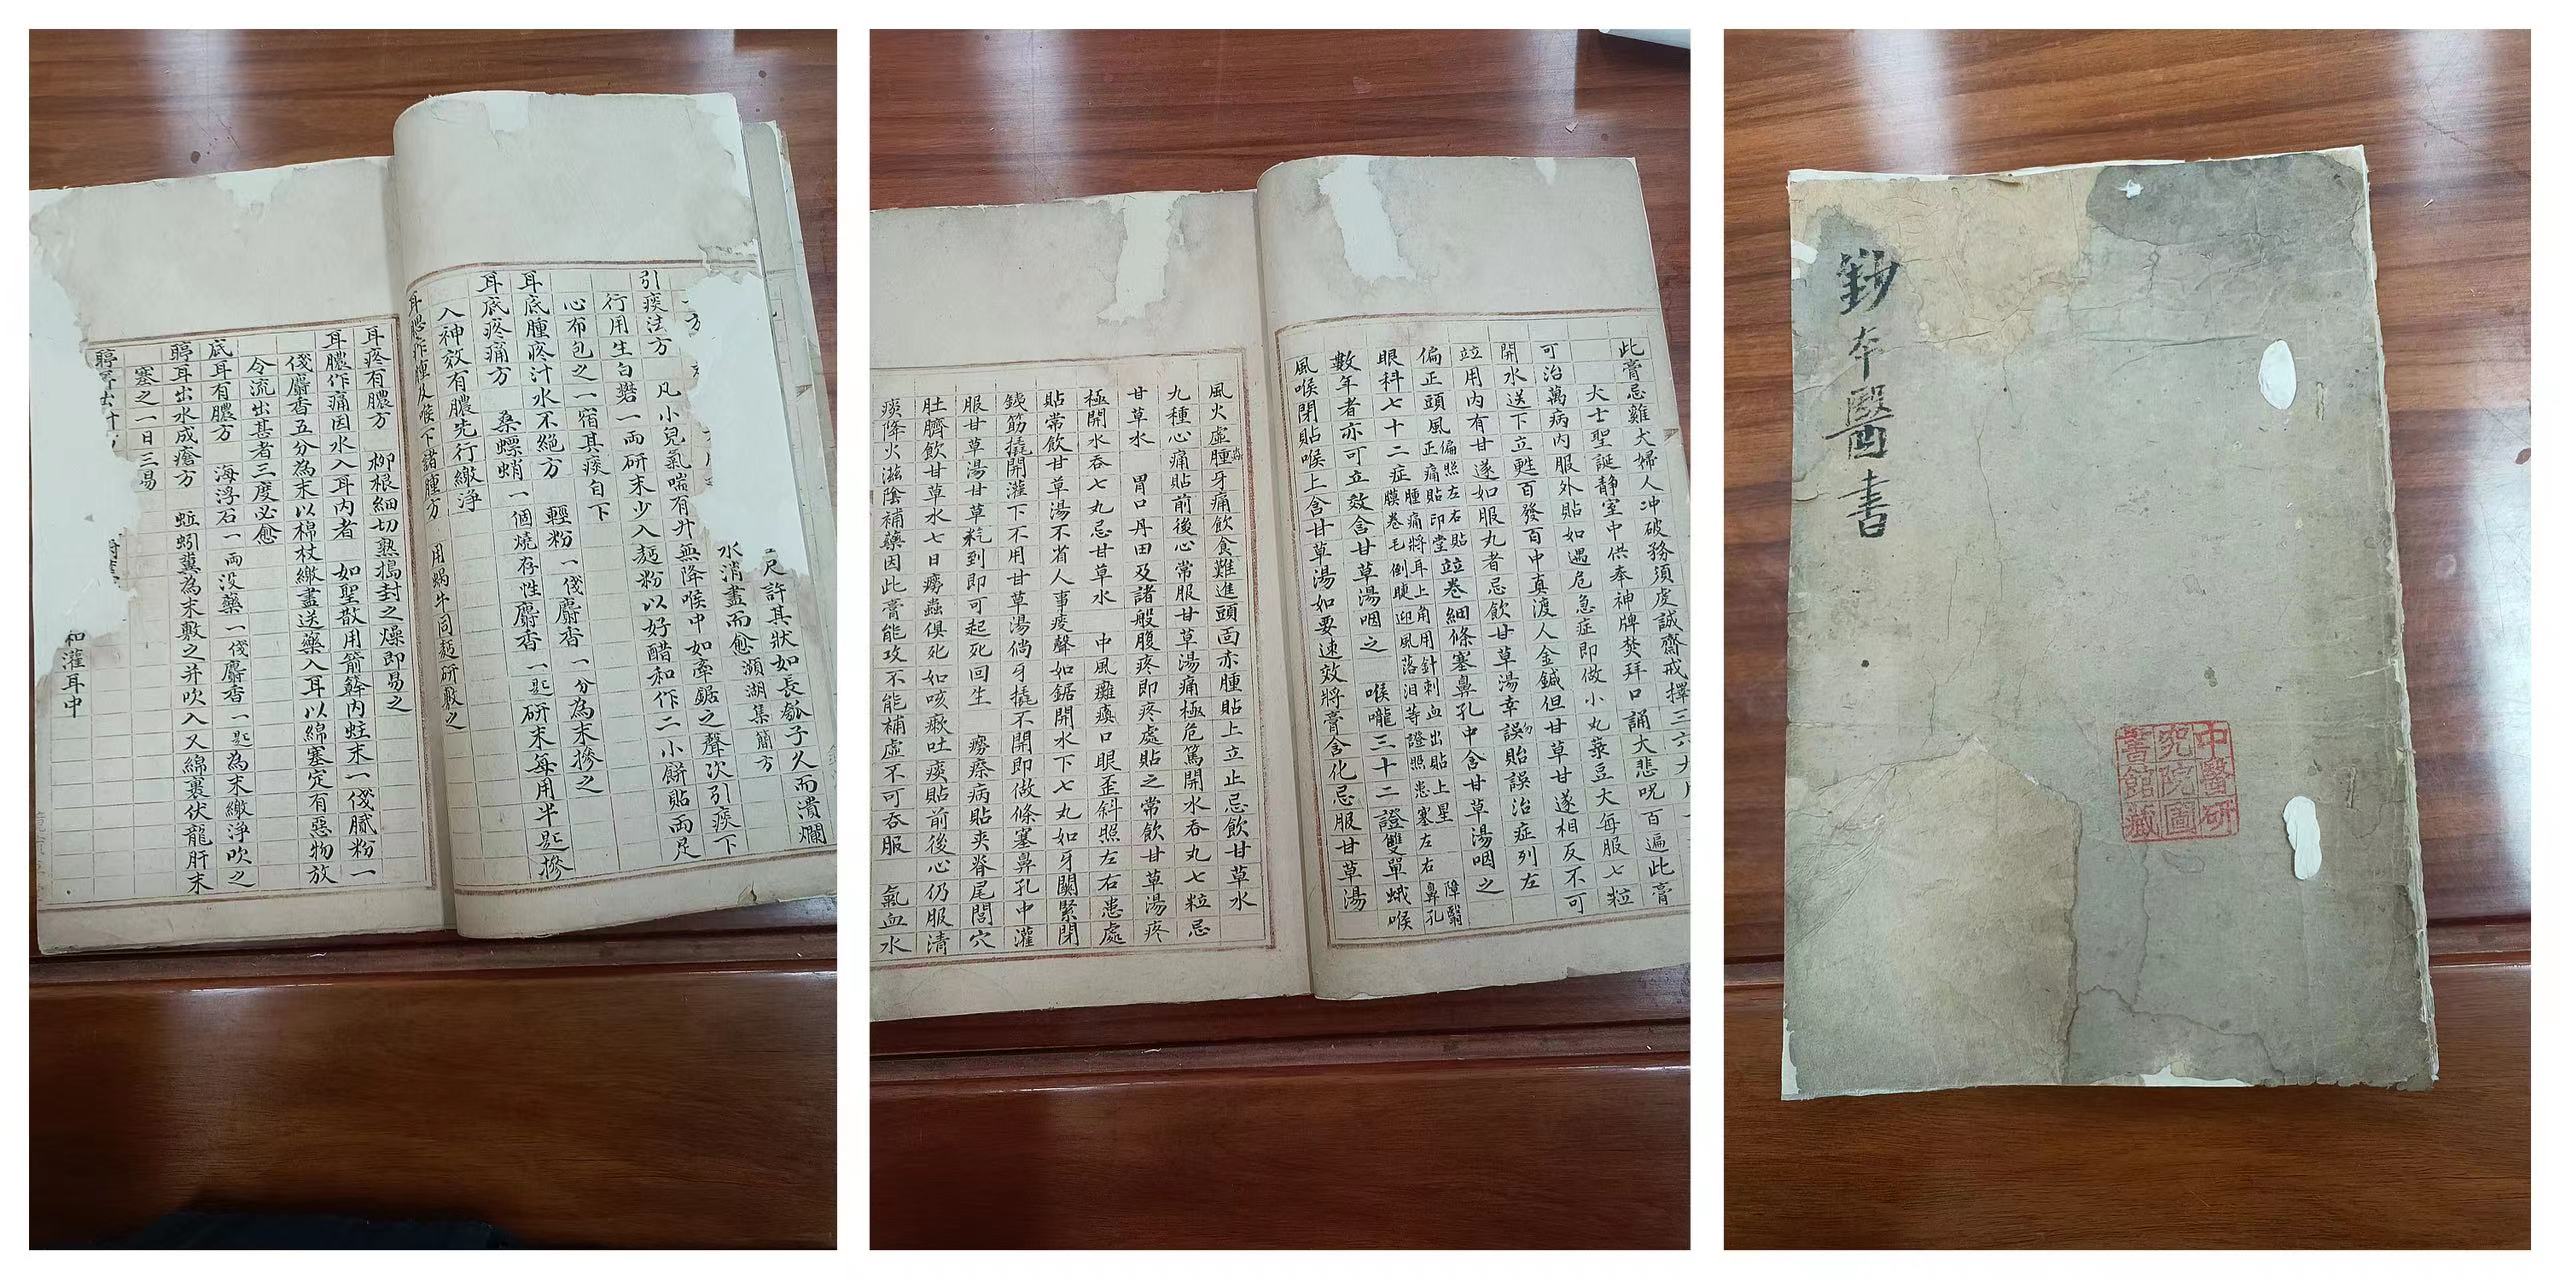 尺許其狀如長瓠子久而潰爛
水消盡而愈 瀕湖集簡方
引痰法方 凡小兒氣喘有升無降喉中如牽鋸之聲次引痰下
行用生白礬一兩研末少入麵粉以好醋和作二小餅貼兩足
心布包之一宿其痰自下
耳底腫疼汁水不絕方 輕粉一伐麝香一分為末摻之
耳底疼痛方 桑螵蛸一個燒存性麝香一匙研末每用半匙摻
入神效有膿先行繳淨
耳腮痄腫及喉下諸腫方 用蝸牛同麵研敷之
耳疼有膿方 柳根細切熟搗封之燥即易之
耳膿作痛因水入耳內者 如聖散用箭簳內蛀末一伐膩粉一
伐麝香五分為末以棉杖繳盡送藥入耳以綿塞定有惡物放
令流出甚者三度必愈
底耳有膿方 海浮石一兩沒藥一伐麝香一匙為末繳淨吹之
聤耳出水成瘡方 蚯蚓糞為末敷之并吹入又綿裹伏龍肝末
塞之一日三易
聤耳出汁方
和灌耳中
此膏忌雞犬婦人冲破務須虔誠齋戒擇三六九
大士聖誕靜室中供奉神牌焚拜口誦大悲呪百遍此膏
可治萬病內服外貼如遇危急症即做小丸菉豆大每服七粒
開水送下立甦百發百中真渡人金鍼但甘草甘遂相反不可
竝用內有甘遂如服丸者忌飲甘草湯幸勿誤貽誤治症列左
偏正頭風偏照左右貼正痛貼印堂竝卷細條塞鼻孔中含甘草湯咽之
眼科七十二症腫痛將耳上角用針刺血出貼上星障翳膜卷毛倒睫迎風落泪等證照患塞左右鼻孔
數年者亦可立效含甘草湯咽之 喉嚨三十二證雙單蛾喉
風喉閉貼喉上含甘草湯如要速效將膏含化忌服甘草湯
風火虛腫牙痛飲食難進頭面赤腫貼上立止忌飲甘草水
九種心痛貼前後心常服甘草湯痛極危篤開水吞丸七粒忌
甘草水 胃口丹田及諸般腹疼即疼處貼之常飲甘草湯疼
極開水吞七丸忌甘草水 中風癱瘓口眼歪斜照左右患處
貼常飲甘草湯不省人事痰聲如鋸開水下七丸如牙關緊閉
銕筯撬開灌下不用甘草湯倘牙撬不開即做條塞鼻孔中灌
服甘草湯甘草乾到即可起死回生 癆瘵病貼夾脊尾閭穴
肚臍飲甘草水七日癆蟲俱死如咳嗽吐痰貼前後心仍服清
痰降火滋陰補藥因此膏能攻不能補虛不可吞服 氣血水
鈔本醫書
中醫研
究院圖
書館藏